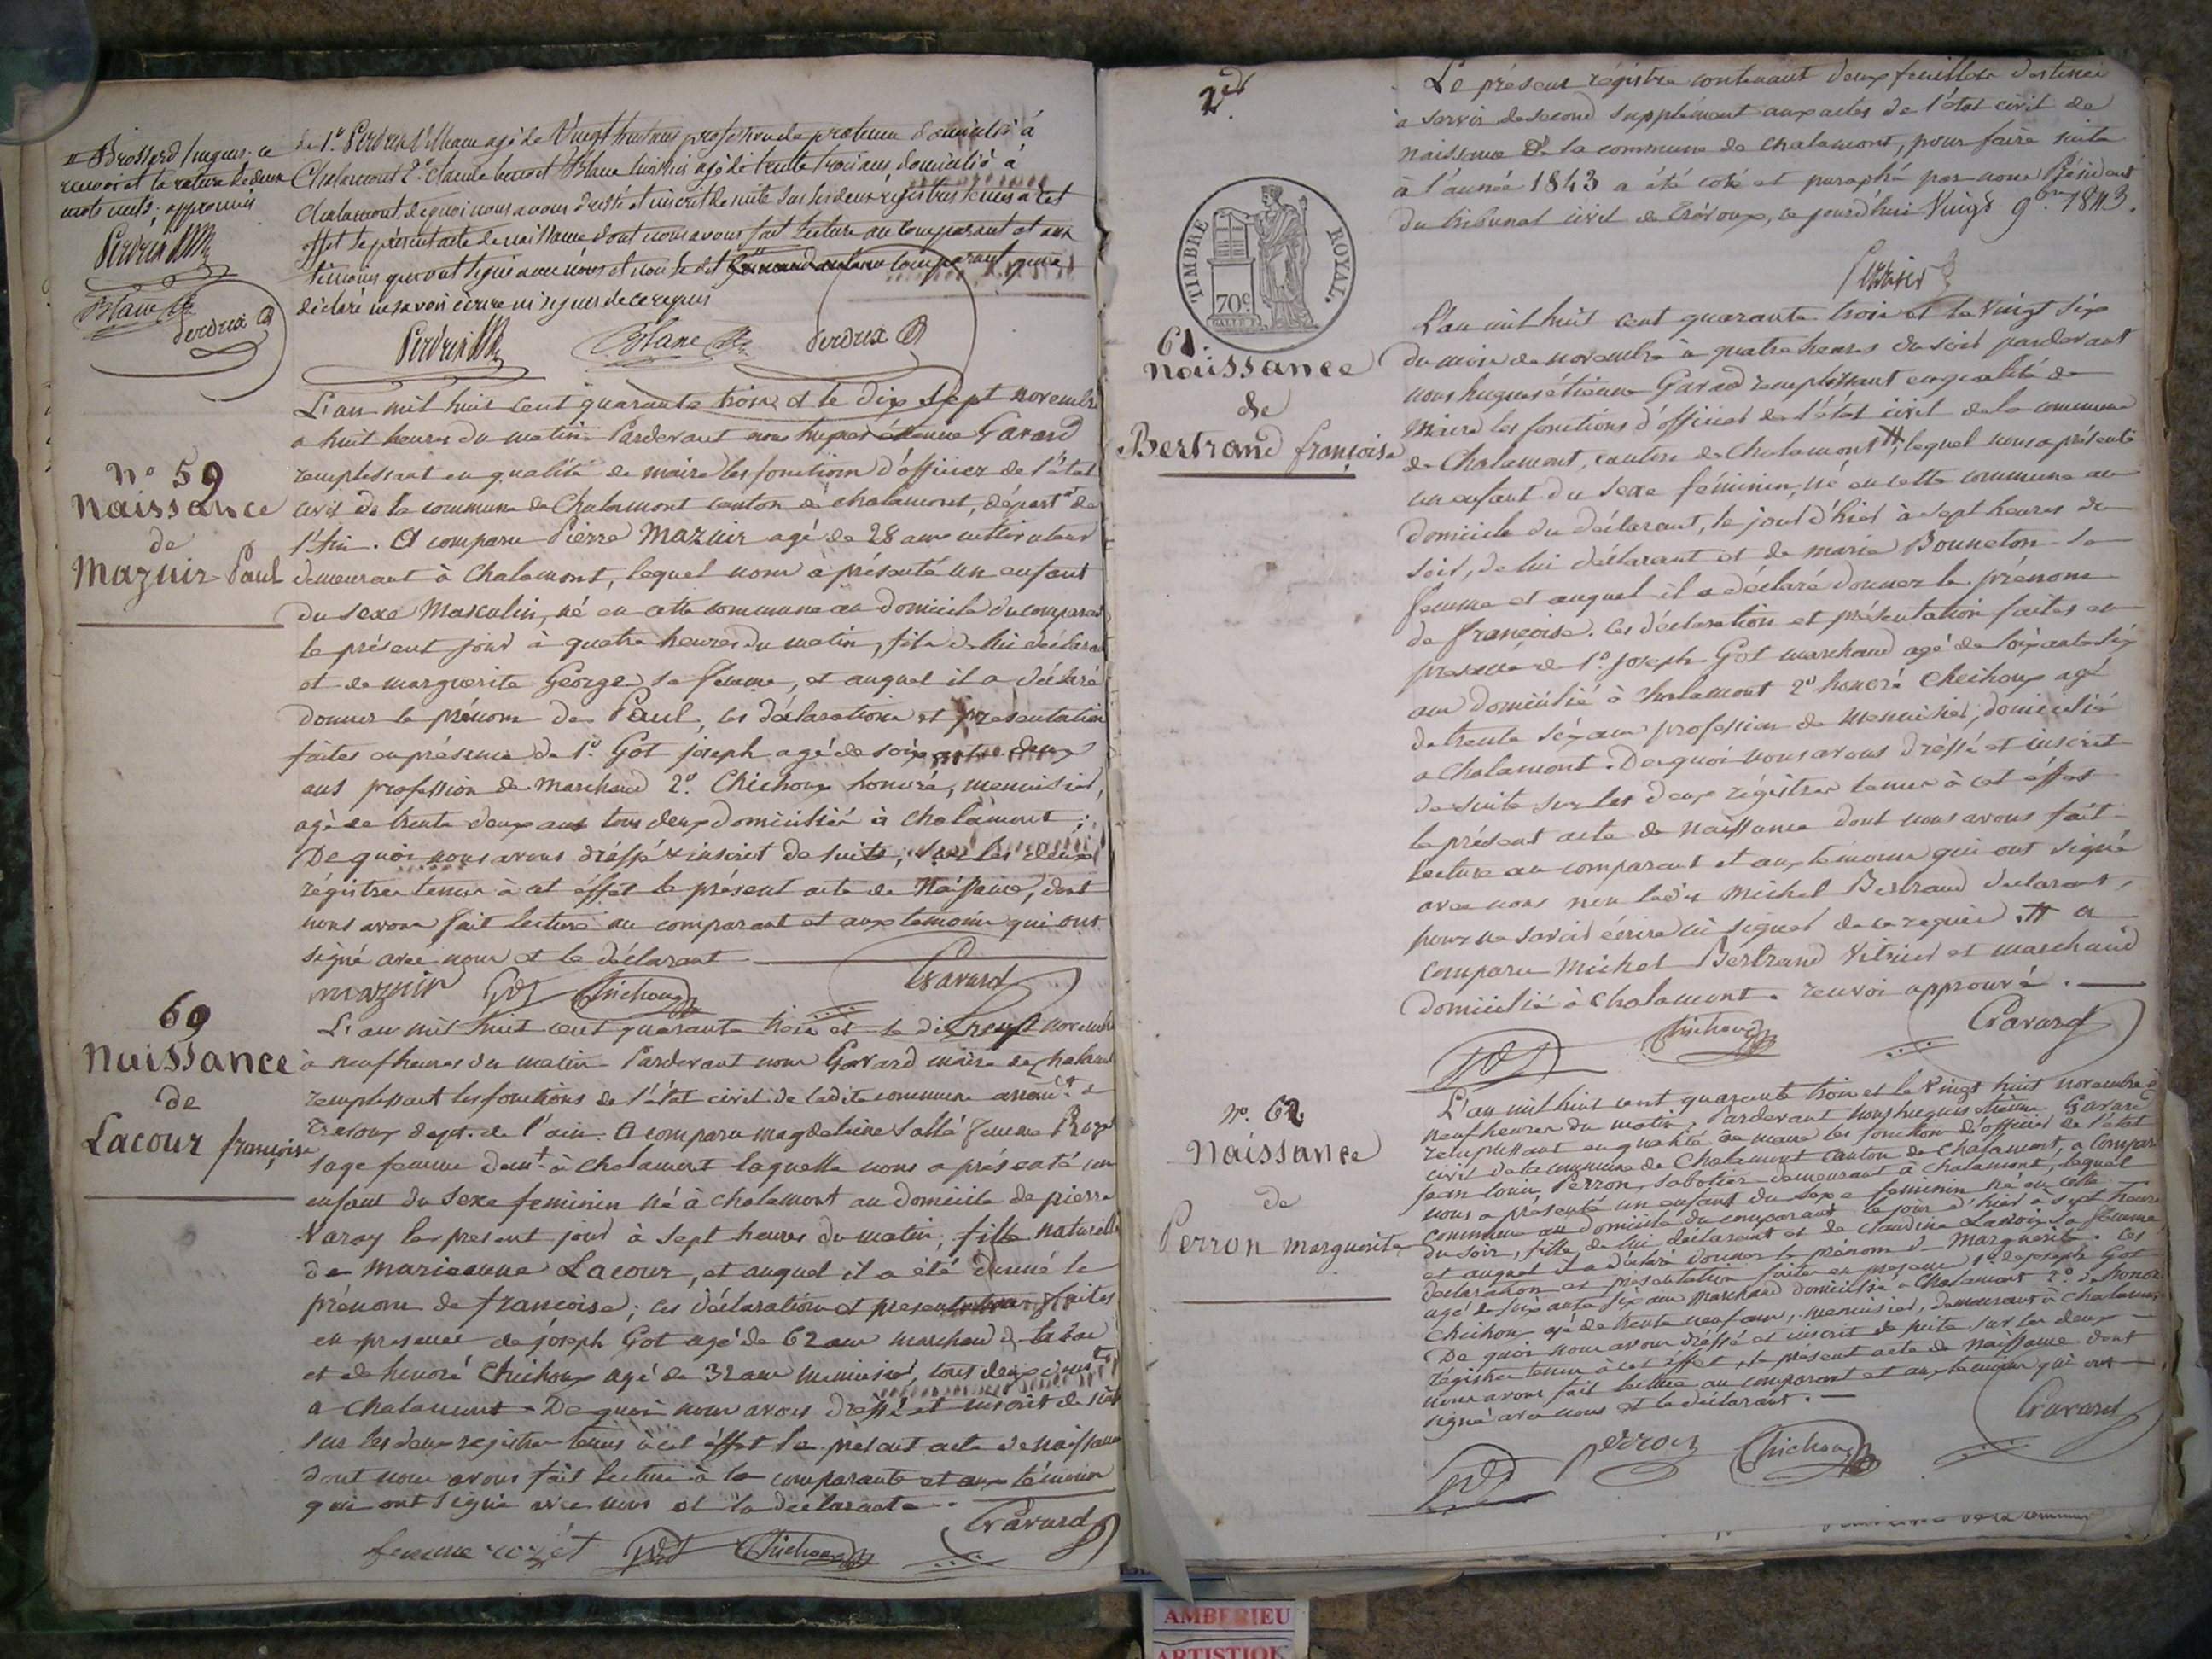 Brossard hugues. ce
renvoi et la rature de deux
mots nuls; approuvés
Perdrix
Blanc
Perdrix
de 1º Perdrix agé de Vingt huit ans profession de domicilié à
Chalamont 2º Claude benoit Blanc agé de trente trois ans, domicilié à
Chalamont, de quoi nous avons dressé et inscrit de suite sur les deux régistres tenus à cet
effet le présent acte de naissance dont nous avons fait lecture au comparant et aux
témoins qui ont signé avec nous et non le dit comparant qui a
déclaré ne savoir écrire ni signer de ce requis
Perdrix Blanc Perdrix
nº 59
naissance
de
Mazuir Paul
L'an mil huit cent quarante trois et le dix sept novembre
a huit heures du matin Pardevant nous hugues étienne Gavard
remplissant en qualité de maire les fonctions d'officier de l'état
civil de la commune de Chalamont canton de chalamont, départt de
l'Ain. A comparu Pierre Mazuir agé de 28 ans cultivateur
demeurant à Chalamont, lequel nous a présenté un enfant
du sexe Masculin, né en cette commune au domicile du comparant
le présent jour à quatre heures du matin, fils de lui déclarant
et de marguerite George sa femme, et auquel il a déclaré
donner le prénom de Paul, les déclaration et présentation
faites en présence de 1º Got joseph agé de soixante deux
ans profession de marchand 2º. Chichoux honoré, menuisier,
agé de trente deux ans tous deux domicilié à chalamont;
De quoi nous avons dréssé & inscrit de suite, sur les deux
régistres tenus à cet éffet le présent acte de Naissance, dont
nous avons fait lecture au comparant et aux témoins qui ont
signé avec nous et le déclarant
mazuir Got Chichoux Gavard
60
Naissance
de
Lacour françoise
L'an mil huit cent quarante trois et le dix neuf novembre
à neuf heures du matin Pardevant nous Gavard maire de chalamont
remplissant les fonctions de l'état civil de ladite commune arrondt de
Trevoux dept. de l'ain. A comparu magdeleine Sallé femme Rozet
sage femme demt à chalamont laquelle nous a présenté un
enfant du sexe feminin né à chalamont au domicile de pierre
Varay le present jour à sept heures du matin, fille naturelle
de marieanne Lacour, et auquel il a été donné le
prénom de françoise; les déclaration et presentation faites
en presence de joseph Got agé de 62 ans marchand de tabac
et de honoré Chichoux agé de 32 ans menuisier, tous deux demt
a chalamont. De quoi nous avons dressé et inscrit de suite
sur les deux registres tenus à cet éffet le présent acte de naissance
dont nous avons fait lecture à la comparante et aux témoins
qui ont signé avec nous et la déclarante.
femme rozét Got Chichoux Gavard
2ed
Le présent régistre contenant deux feuillets destiné
à servir de second supplément aux actes de l'état civil de
naissance de la commune de Chalamont, pour faire suite
à l'année 1843 a été coté et paraphé par nous Président
du tribunal civil de Trévoux, ce jourd'hui Vingt 9bre 1843.
TIMBRE ROYAL.
70c.
61.
naissance
de
Bertrand françoise
L'an mil huit cent quarante trois et le Vingt six
du mois de novembre à quatre heures du soir pardevant
nous hugues étienne Gavard remplissant en qualité de
Maire les fonctions d'officier de l'état civil de la commune
de Chalamont, canton de Chalamont #; lequel nous a présenté
un enfant du sexe féminin, né en cette commune au
domicile du déclarant, le jour d'hier à sept heures du
soir, de lui déclarant et de marie Bonneton sa
femme et auquel il a déclaré donner le prénom
de françoise. les déclaration et présentation faites en
présence de 1º. joseph Got marchand agé de soixante six
ans domicilié à chalamont 2º honoré Chichoux agé
de trente six ans profession de menuisier, domicilié
a Chalamont. De quoi nous avons dréssé et inscrit
de suite sur les deux régistres tenus à cet éffet
le présent acte de naissance dont nous avons fait
lecture au comparant et aux témoins qui ont signé
avec nous non ledit Michel Bertrand déclarant,
pour ne savoir écrire ni signer de ce requis. # a
comparu Michel Bertrand Vitrier et marchand
domicilié à Chalamont. renvoi approuvé.
Got Chichoux Gavard
Nº. 62
Naissance
de
Perron marguerite
L'an mil huit cent quarante trois et le Vingt huit novembre à
neuf heures du matin, Pardevant nous hugues étienne Gavard
remplissant en qualité de maire les fonction d'officier de l'état
civil de la commune de Chalamont canton de Chalamont, a comparu
jean louis Perron, sabotier demeurant à chalamont, lequel
nous a présenté un enfant du sexe feminin né en cette
commune au domicile du comparant le jour d'hier à sept heures
du soir, fille de lui déclarant et de claudine Lanoix sa femme
et auquel il a déclaré donner le prénom de Marguerite. les
déclaration et présentation faites en presence 1º de joseph Got
agé de soixante six ans marchand domicilié à Chalamont 2º. de honoré
Chichoux agé de trente neuf ans, menuisier, demeurant à chalamont,
De quoi nous avons dréssé et inscrit de suite sur les deux
régistres tenus à cet effet, le présent acte de naissance dont
nous avons fait lecture au comparant et aux témoins qui ont
signé avec nous et le déclarant.
Got Perron Chichoux Gavard
de la commune
AMBERIEU
ARTISTIQ